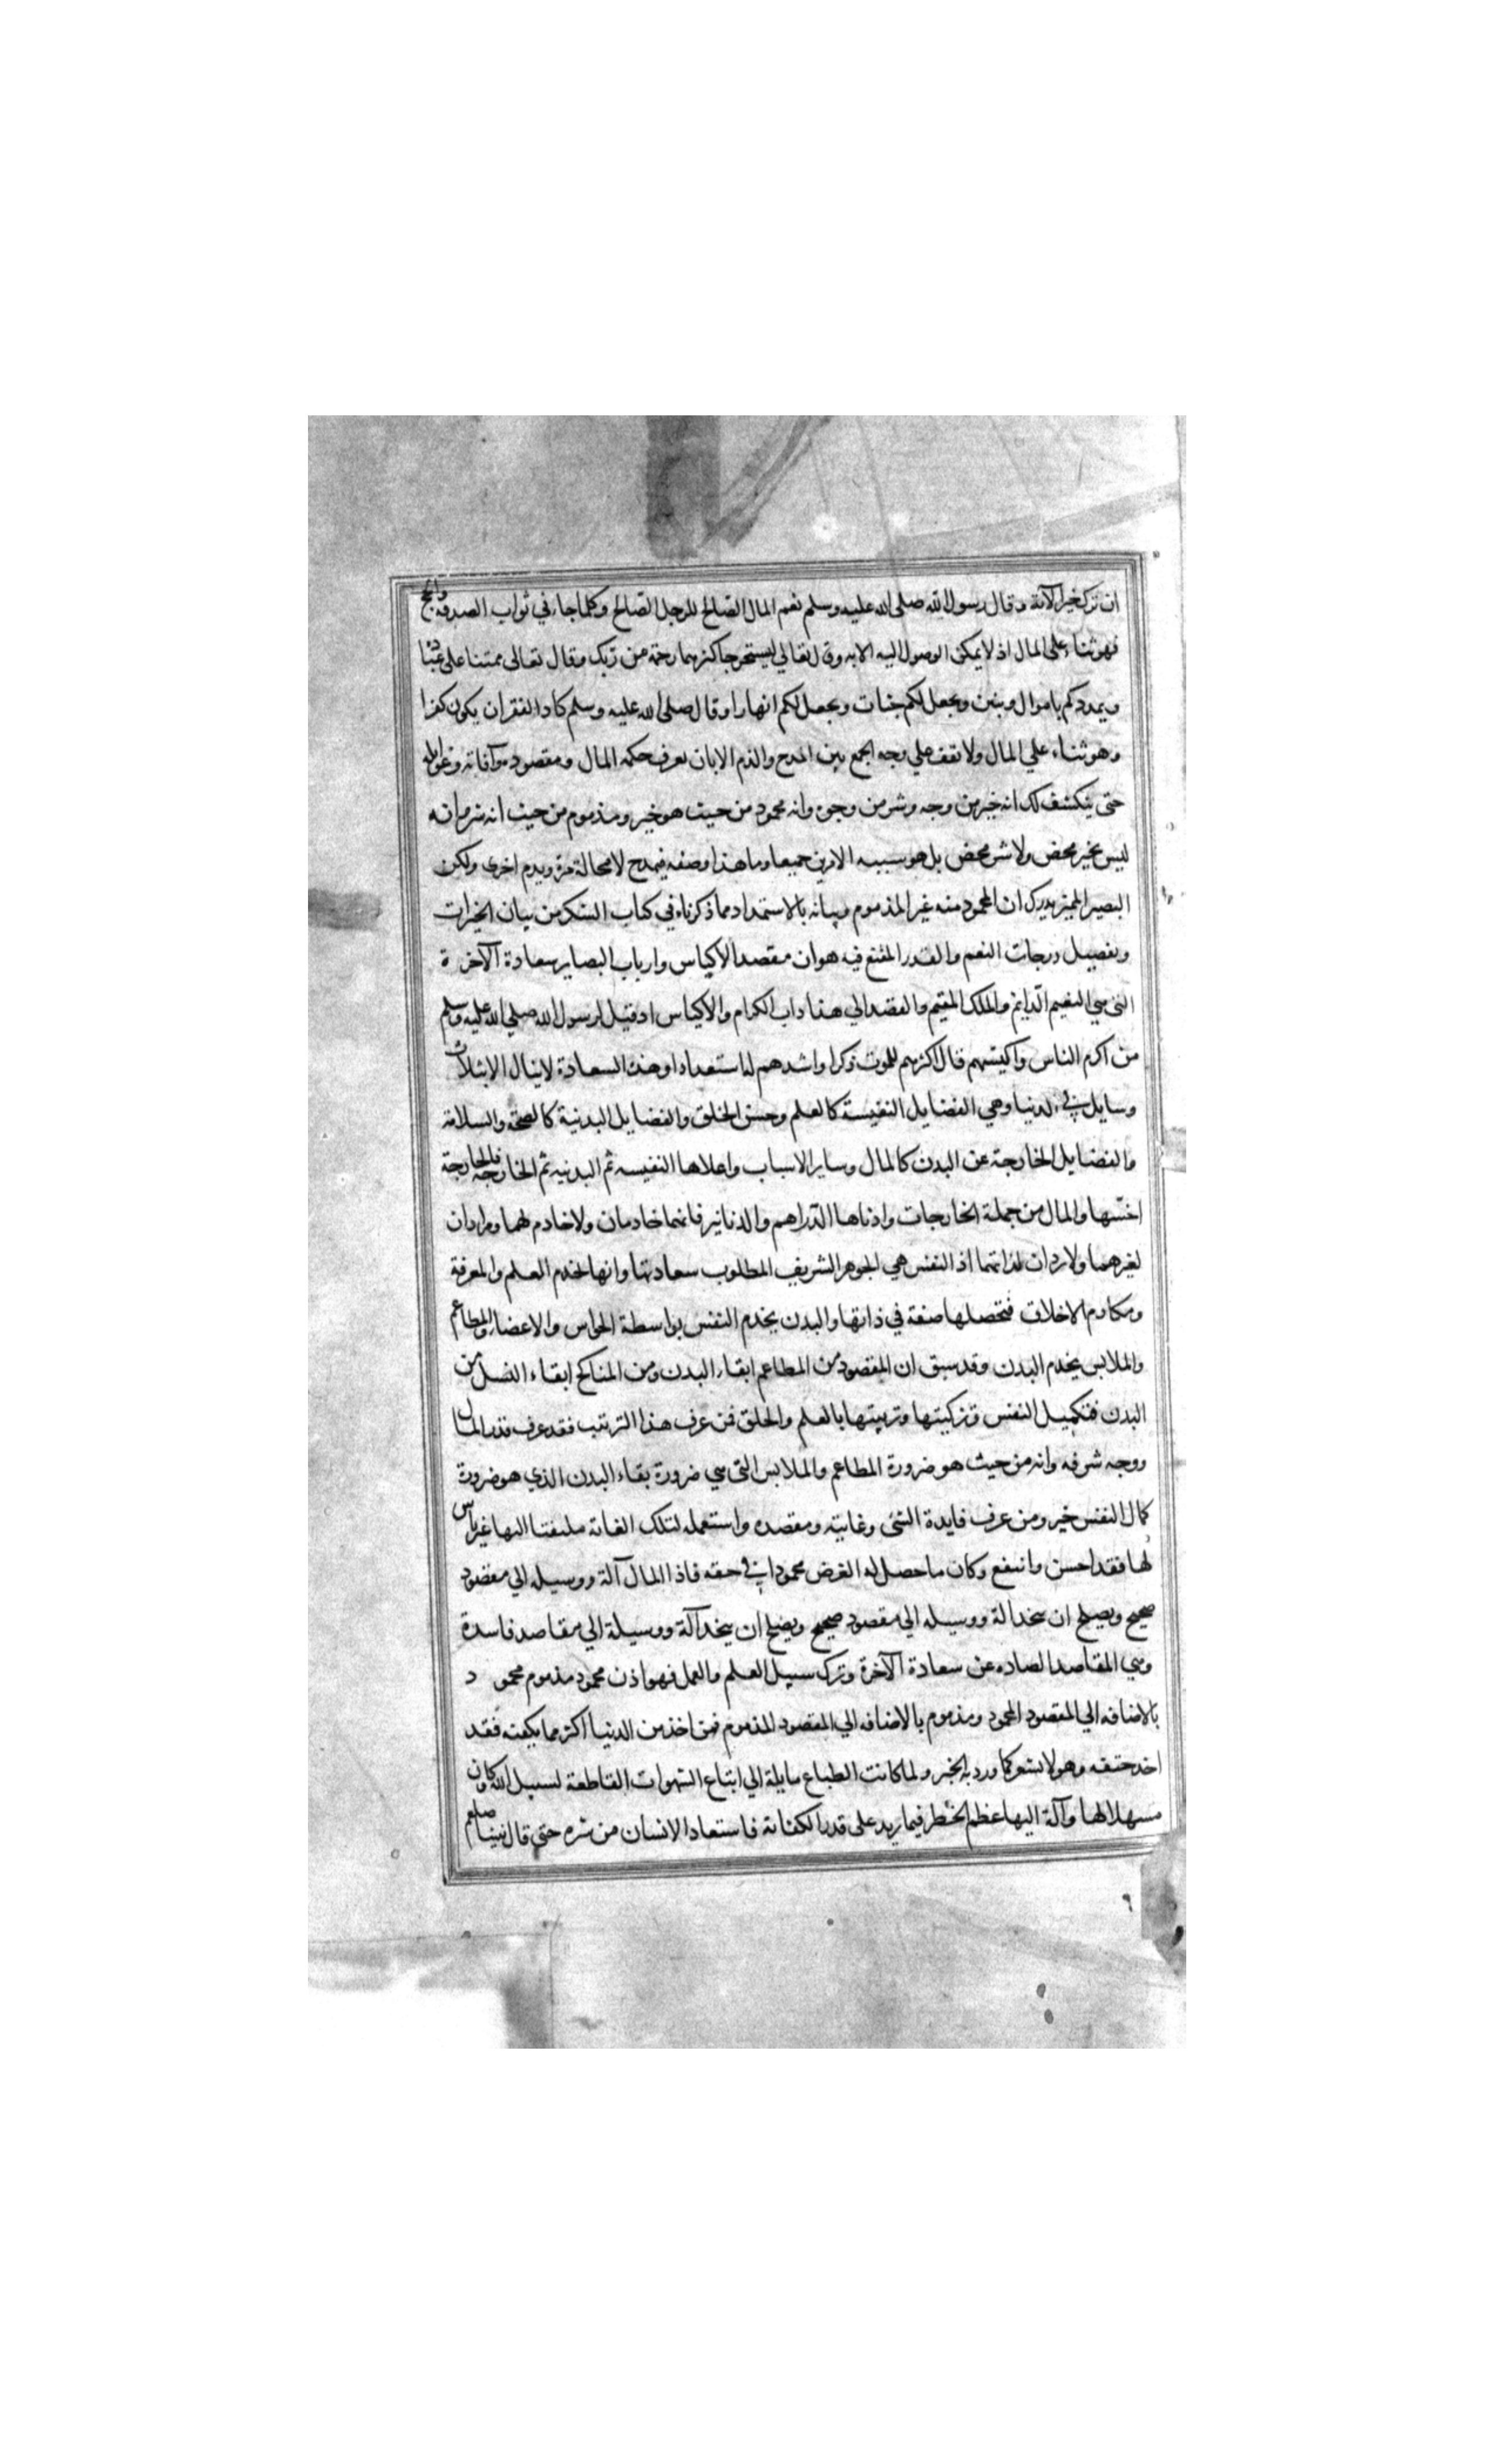 ان ترك خيرا الآية وقال رسول الله صلى الله عليه وسلم نعم المال الصالح للرجل الصالح وكلما جاء في ثواب الصدقه والحج
فهو ثناء على المال اذ لا يمكن الوصول اليه الا به وقال تعالي ليستخرجا كنزهما رحمة من ربك وقال تعالى ممتنا على عباده
ويمددكم باموال وبنين ويجعل لكم جنات ويجعل لكم انهارا وقال صلى الله عليه وسلم كاد الفقر ان يكون كفرا
وهو ثناء علي المال ولا تقف علي وجه الجمع بين المدح والذم الا بان تعرف حكمه المال ومقصوده وآفاته وغوائله
حتى ينكشف لك انه خير من وجه وشر من وجوه وانه محمود من حيث هو خير ومذموم من حيث انه شر فانه
ليس بخير محض ولا شر محض بل هو سببه الامرين جميعا وما هذا وصفه فيمدح لا محالة مرة ويذم اخرى ولكن
البصير المميز يدرك ان المحمود منه غير المذموم وبيانه بالاستمداد مما ذكرناه في كتاب الشكر من بيان الخيرات
وتفصيل درجات النعم والقدر المقنع فيه هو ان مقصد الاكياس وارباب البصاير سعادة الآخرة
التى هي النعيم الدايم والملك المقيم والقصد الي هذا داب الكرام والاكياس اذ قيل لرسول الله صلي الله عليه وسلم
من اكرم الناس واكيسهم قال اكثرهم للموت ذكرا واشدهم له استعدادا وهذه السعادة لا ينال الا بثلاث
وسايل في الدنيا وهي الفضايل النفيسة كالعلم وحسن الخلق والفضايل البدنية كالصحة والسلامة
والفضايل الخارجة عن البدن كالمال وساير الاسباب واعلاها النفيسه ثم البدنيه ثم الخارجه فالخارجة
اخسها والمال من جملة الخارجات وادناها الدراهم والدنانير فانهما خادمان ولا خادم لهما ومرادان
لغيرهما ولا يرادان لذاتهما اذ النفس هي الجوهر الشريف المطلوب سعادتها وانها تخدم العلم والمعرفة
ومكارم الاخلاق فتحصلها صفة في ذاتها والبدن يخدم النفس بواسطة الحواس والاعضاء والمطاعم
والملابس يخدم البدن وقد سبق ان المقصود من المطاعم ابقاء البدن ومن المناكح ابقاء النسل من
البدن فتكميل النفس وتزكيتها وتربيتها بالعلم والخلق فمن عرف هذا الترتيب فقد عرف قدر المال
ووجه شرفه وانه من حيث هو ضرورة المطاعم والملابس التى هي ضرورة بقاء البدن الذي هو ضرورة
كمال النفس خير ومن عرف فايدة الشئ وغايته ومقصده واستعمله لتلك الغاية ملتفتا اليها غير ناس
لها فقد احسن وانتفع وكان ما حصل له الغرض محمودا في حقه فاذا المال آلة ووسيله الي مقصود
صحيح ويصلح ان يتخذ الة ووسيله الي مقصود صحيح ويصلح ان يتخذ آلة ووسيلة الي مقاصد فاسدة
وهي المقاصد الصاده عن سعادة الآخرة وترك سبيل العلم والعمل فهو اذن محمود مذموم محمود
بالاضافه الي المقصود المحمود ومذموم بالاضافه الي المقصود المذموم فمن اخذ من الدنيا اكثر مما يكفيه فقد
اخذ حتفه وهو لا يشعر كما ورد به الخبر ولما كانت الطباع مايلة الي اتباع الشهوات القاطعة لسبيل الله وكان
مسهلا لها وآلة اليها عظم الخطر فيما يزيد على قدر الكفاية فاستعاذ الانسان من شره حتي قال نبينا صلعم